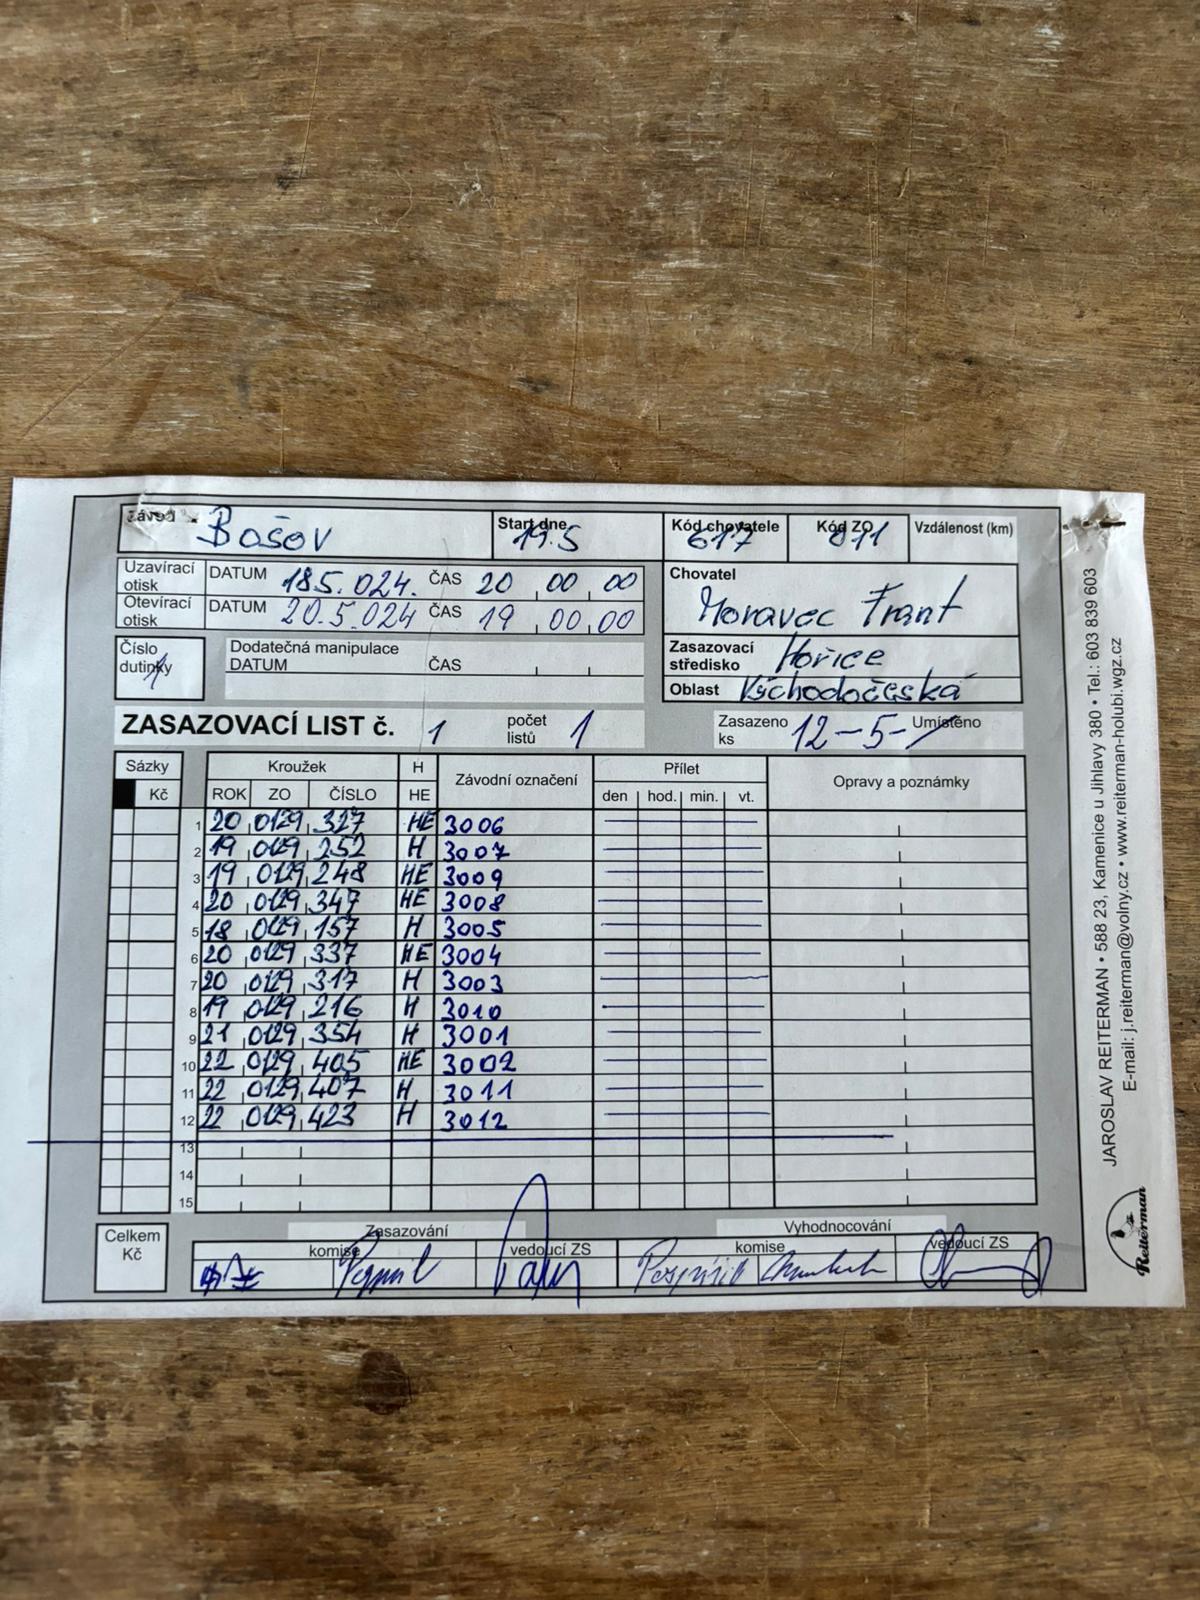 Závod Bošov Start dne 19.5 Kód chovatele 617 Kód ZO 011 Vzdálenost (km)
Uzavírací otisk DATUM 18.5.024. ČAS 20 00 00
Otevírací otisk DATUM 20.5.024 ČAS 19 00 00
Chovatel Moravec Frant
Číslo dutinky 1
Dodatečná manipulace
DATUM ČAS
Zasazovací středisko Hořice
Oblast Východočeská
ZASAZOVACÍ LIST č. 1 počet listů 1 Zasazeno ks 12-5- Umístěno
Sázky Kroužek H Závodní označení Přílet Opravy a poznámky
Kč ROK ZO ČÍSLO HE den hod. min. vt.
1 20 0129 327 HE 3006
2 19 0129 252 H 3007
3 19 0129 248 HE 3009
4 20 0129 347 HE 3008
5 18 0129 157 H 3005
6 20 0129 337 HE 3004
7 20 0129 317 H 3003
8 19 0129 216 H 3010
9 21 0129 354 H 3001
10 22 0129 405 HE 3002
11 22 0129 407 H 3011
12 22 0129 423 H 3012
13
14
15
Celkem Kč Zasazování Vyhodnocování
komise vedoucí ZS komise vedoucí ZS
JAROSLAV REITERMAN • 588 23, Kamenice u Jihlavy 380 • Tel.: 603 839 603
E-mail: j.reiterman@volny.cz • www.reiterman-holubi.wgz.cz
Reiterman